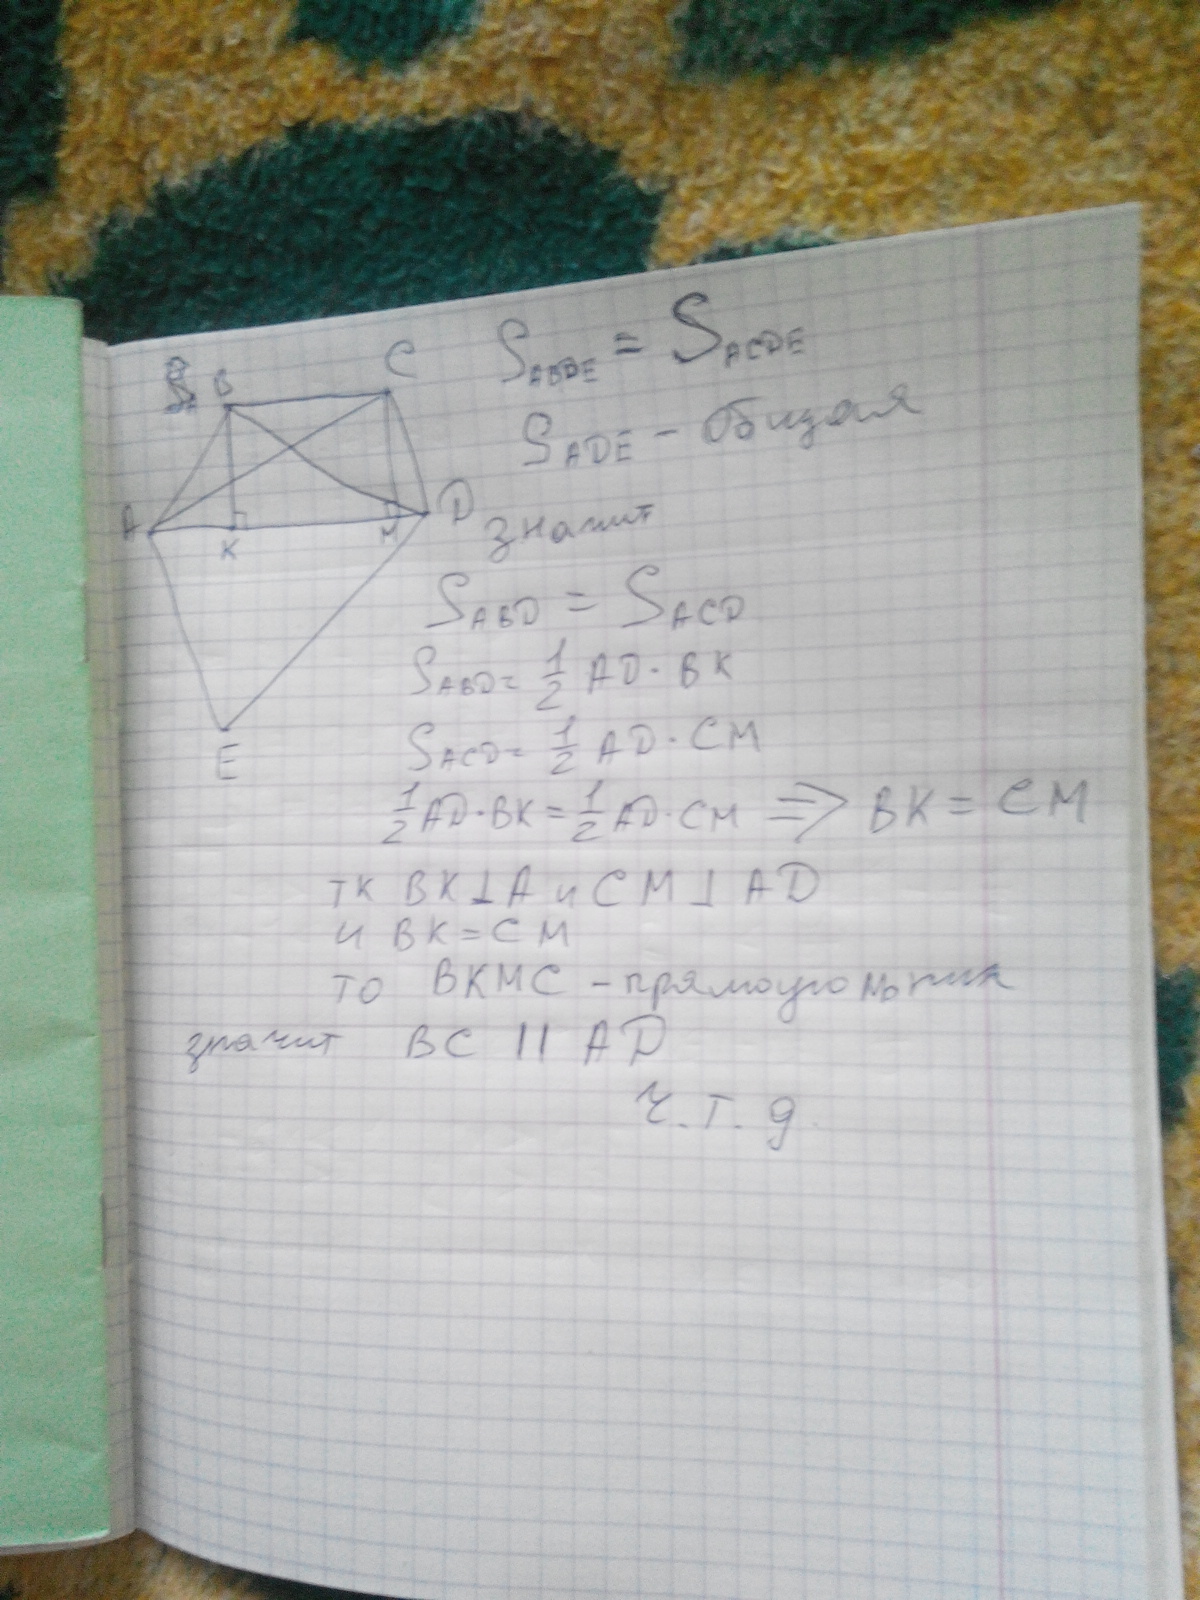 B C
A K M D
E
S_ABDE = S_ACDE
S_ADE - общая
значит
S_ABD = S_ACD
S_ABD = 1/2 AD · BK
S_ACD = 1/2 AD · CM
1/2 AD · BK = 1/2 AD · CM => BK = CM
тк BK ⊥ A и CM ⊥ AD
и BK = CM
то BKMC - прямоугольник
значит BC || AD
ч.т.д.